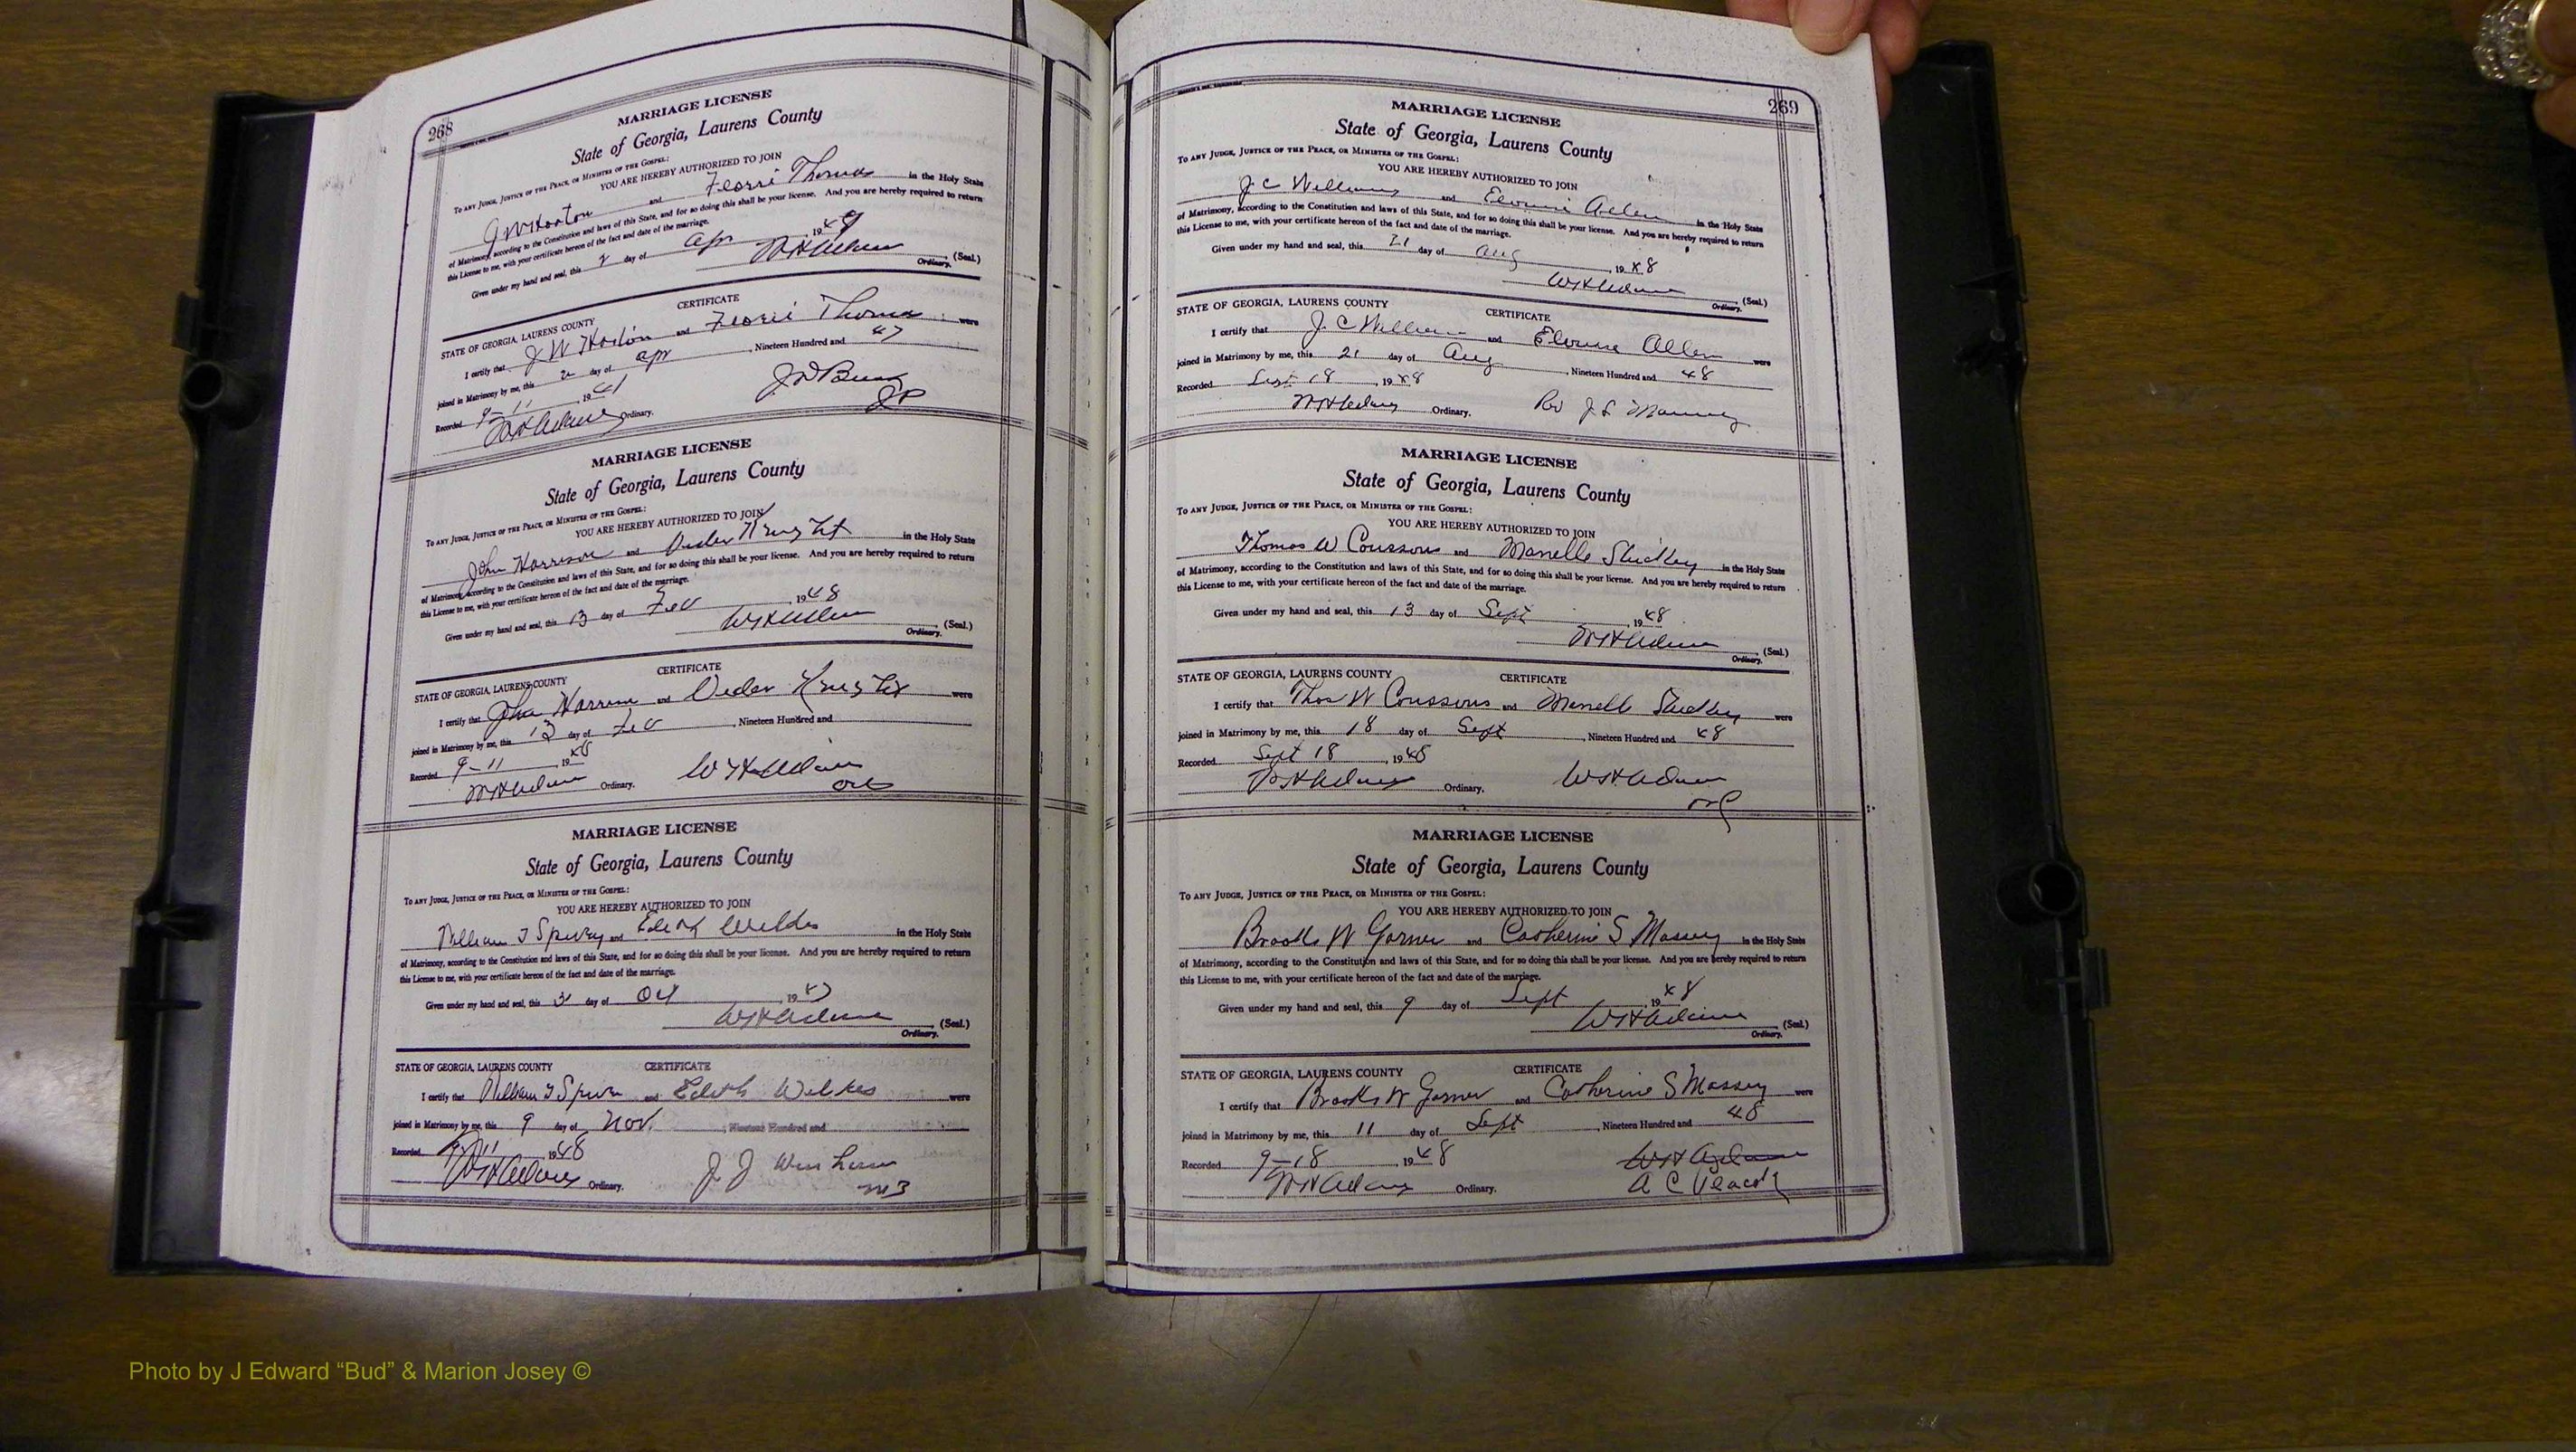 268
MARRIAGE LICENSE
State of Georgia, Laurens County
To ANY JUDGE, JUSTICE OF THE PEACE, OR MINISTER OF THE GOSPEL:
YOU ARE HEREBY AUTHORIZED TO JOIN
G W Horton and Florri Thomas in the Holy State
of Matrimony, according to the Constitution and laws of this State, and for so doing this shall be your license. And you are hereby required to return
this License to me, with your certificate hereon of the fact and date of the marriage.
Given under my hand and seal, this 2 day of apr 194
W H Adams (Seal.)
Ordinary.
CERTIFICATE
STATE OF GEORGIA, LAURENS COUNTY
I certify that J W Horton and Florri Thomas were
joined in Matrimony by me, this 2 day of apr, Nineteen Hundred and 47
Recorded 9-11 194
W H Adams Ordinary.
JP
MARRIAGE LICENSE
State of Georgia, Laurens County
To ANY JUDGE, JUSTICE OF THE PEACE, OR MINISTER OF THE GOSPEL:
YOU ARE HEREBY AUTHORIZED TO JOIN
John Harrison and in the Holy State
of Matrimony, according to the Constitution and laws of this State, and for so doing this shall be your license. And you are hereby required to return
this License to me, with your certificate hereon of the fact and date of the marriage.
Given under my hand and seal, this 13 day of Feb 1948
W H Adams (Seal.)
Ordinary.
CERTIFICATE
STATE OF GEORGIA, LAURENS COUNTY
I certify that John Harrison and were
joined in Matrimony by me, this 13 day of Feb, Nineteen Hundred and
Recorded 9-11 1948
W H Adams Ordinary. W H Adams
Ord
MARRIAGE LICENSE
State of Georgia, Laurens County
To ANY JUDGE, JUSTICE OF THE PEACE, OR MINISTER OF THE GOSPEL:
YOU ARE HEREBY AUTHORIZED TO JOIN
William T Spivey and Edith Wilkes in the Holy State
of Matrimony, according to the Constitution and laws of this State, and for so doing this shall be your license. And you are hereby required to return
this License to me, with your certificate hereon of the fact and date of the marriage.
Given under my hand and seal, this 3 day of Oct 1947
W H Adams (Seal.)
Ordinary.
STATE OF GEORGIA, LAURENS COUNTY CERTIFICATE
I certify that William T Spivey and Edith Wilkes were
joined in Matrimony by me, this 9 day of Nov., Nineteen Hundred and
Recorded 9-11 1948
W H Adams Ordinary. J J
269
MARRIAGE LICENSE
State of Georgia, Laurens County
To ANY JUDGE, JUSTICE OF THE PEACE, OR MINISTER OF THE GOSPEL:
YOU ARE HEREBY AUTHORIZED TO JOIN
J C Williams and Elouise Allen in the Holy State
of Matrimony, according to the Constitution and laws of this State, and for so doing this shall be your license. And you are hereby required to return
this License to me, with your certificate hereon of the fact and date of the marriage.
Given under my hand and seal, this 21 day of Aug, 1948
W H Adams (Seal.)
Ordinary.
STATE OF GEORGIA, LAURENS COUNTY CERTIFICATE
I certify that J. C Williams and Elouise Allen were
joined in Matrimony by me, this 21 day of Aug, Nineteen Hundred and 48
Recorded Sept 18, 1948
W H Adams Ordinary. Rev J S
MARRIAGE LICENSE
State of Georgia, Laurens County
To ANY JUDGE, JUSTICE OF THE PEACE, OR MINISTER OF THE GOSPEL:
YOU ARE HEREBY AUTHORIZED TO JOIN
Thomas W Coussons and in the Holy State
of Matrimony, according to the Constitution and laws of this State, and for so doing this shall be your license. And you are hereby required to return
this License to me, with your certificate hereon of the fact and date of the marriage.
Given under my hand and seal, this 13 day of Sept, 1948
W H Adams (Seal.)
Ordinary.
STATE OF GEORGIA, LAURENS COUNTY CERTIFICATE
I certify that Thos W Coussons and were
joined in Matrimony by me, this 18 day of Sept, Nineteen Hundred and 48
Recorded Sept 18, 1948
W H Adams Ordinary. W H Adams
MARRIAGE LICENSE
State of Georgia, Laurens County
To ANY JUDGE, JUSTICE OF THE PEACE, OR MINISTER OF THE GOSPEL:
YOU ARE HEREBY AUTHORIZED TO JOIN
Brooks W Garner and Catherine S Massey in the Holy State
of Matrimony, according to the Constitution and laws of this State, and for so doing this shall be your license. And you are hereby required to return
this License to me, with your certificate hereon of the fact and date of the marriage.
Given under my hand and seal, this 9 day of Sept, 1948
W H Adams (Seal.)
Ordinary.
STATE OF GEORGIA, LAURENS COUNTY CERTIFICATE
I certify that Brooks W Garner and Catherine S Massey were
joined in Matrimony by me, this 11 day of Sept, Nineteen Hundred and 48
Recorded 9-18, 1948 W H Adams
W H Adams Ordinary. A C Peacock
Photo by J Edward “Bud” & Marion Josey ©